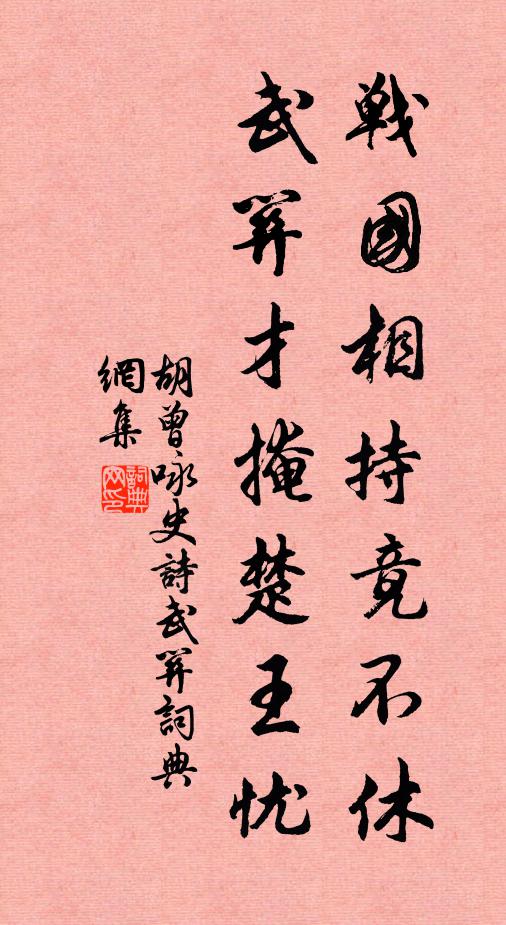 戦國相持竟不休
武關才掩楚王忧
胡曾咏史詩武關詞典
網集
詞典网印